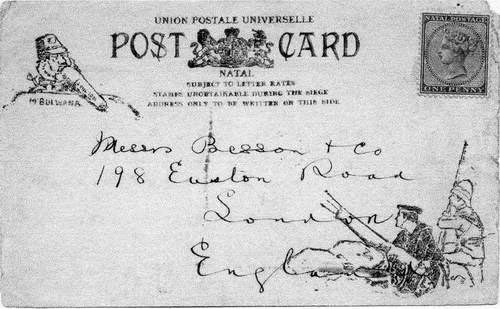 UNION POSTALE UNIVERSELLE
POST CARD
NATAL
SUBJECT TO LETTER RATES
STAMPS UNOBTAINABLE DURING THE SIEGE
ADDRESS ONLY TO BE WRITTEN ON THIS SIDE
Mt BULWANA
NATAL POSTAGE
ONE PENNY
Messrs Besson & Co
198 Euston Road
London
England